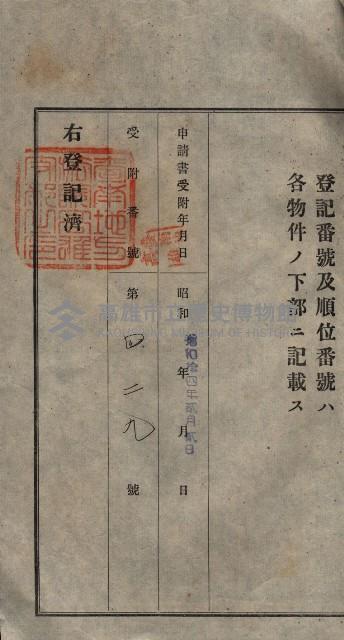 登記番號及順位番號ハ
各物件ノ下部ニ記載ス
申請書受附年月日 昭和 年 月 日
昭和拾四年貳月貳日
受附番號 第 四二九 號
右登記濟
高雄市立歷史博物館
KAOHSIUNG MUSEUM OF HISTORY